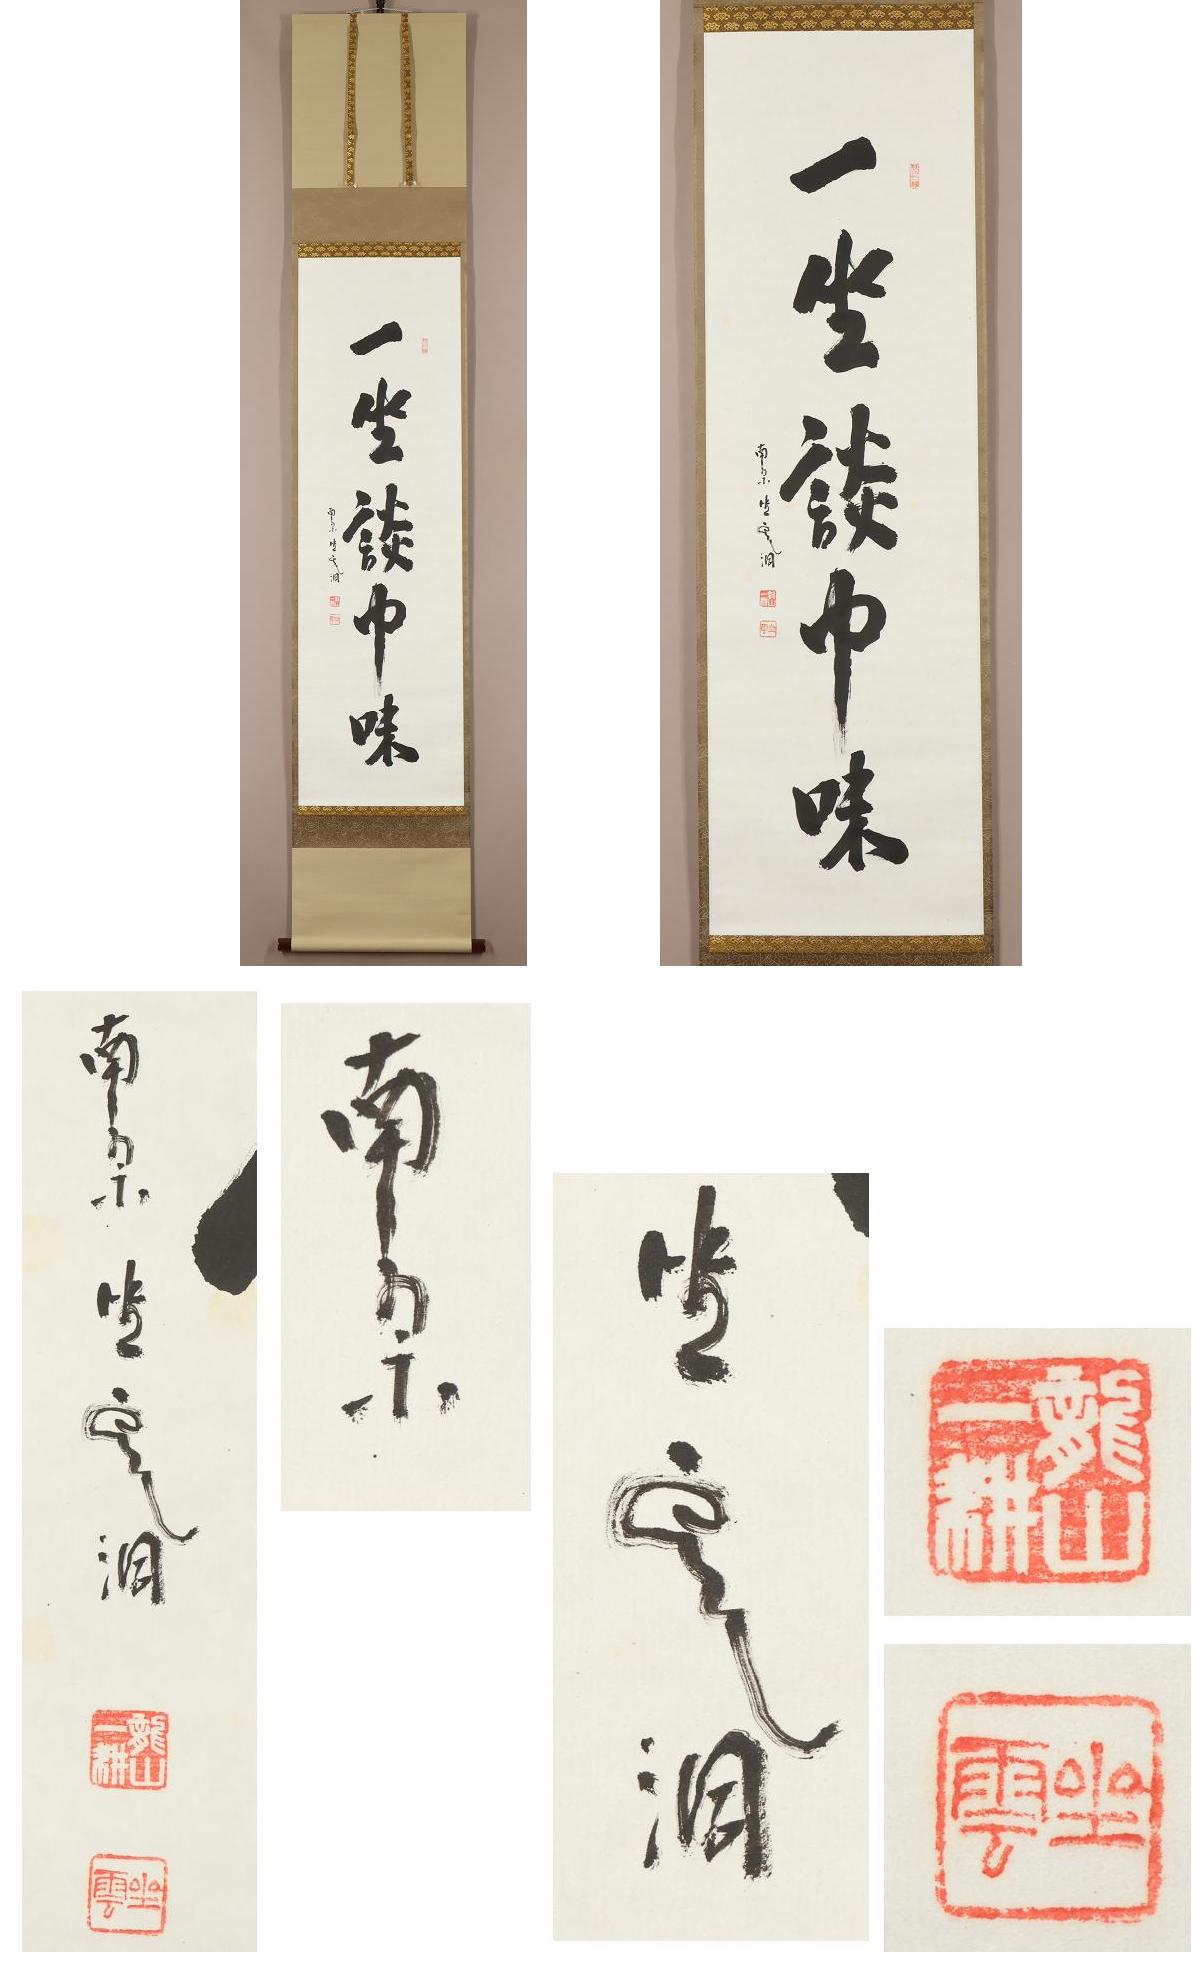 一坐談中味
南宗 坐雲洞
一坐談中味
南宗 坐雲洞
南宗 坐雲洞
龍山一耕
坐雲
南宗
坐雲洞
龍山
一耕
坐雲